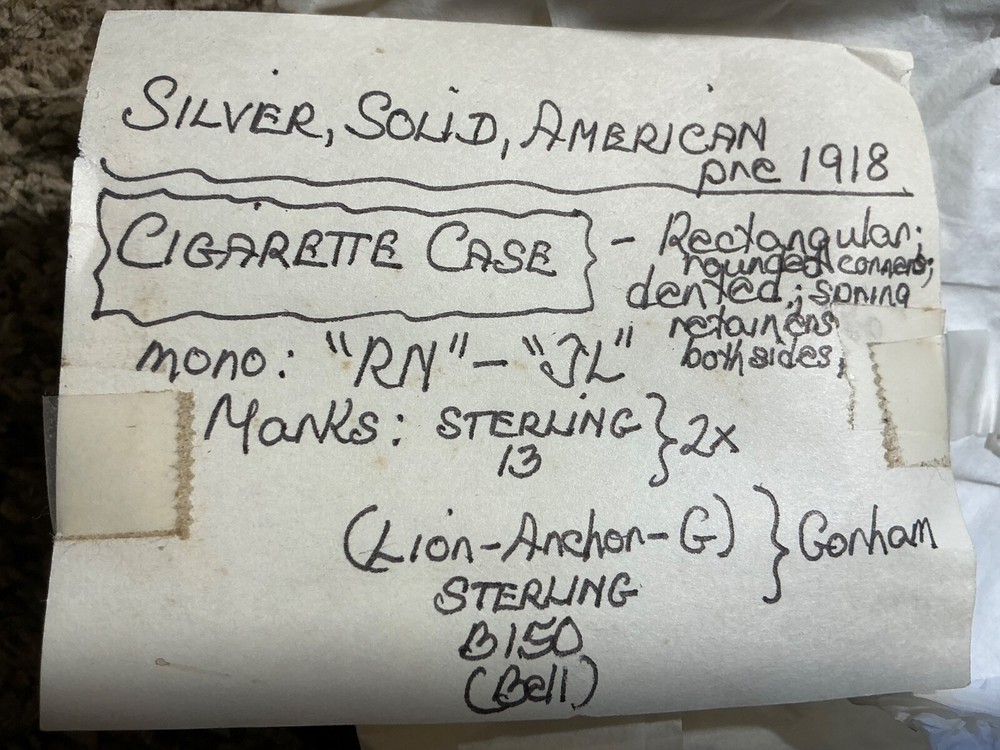 SILVER, SOLID, AMERICAN
pre 1918
CIGARETTE CASE - Rectangular;
rounded corners;
dented; spring
retainers
both sides;
mono: "RN" - "JL"
Marks: STERLING } 2x
13
(Lion-Anchor-G) } Gorham
STERLING
B150
(Bell)